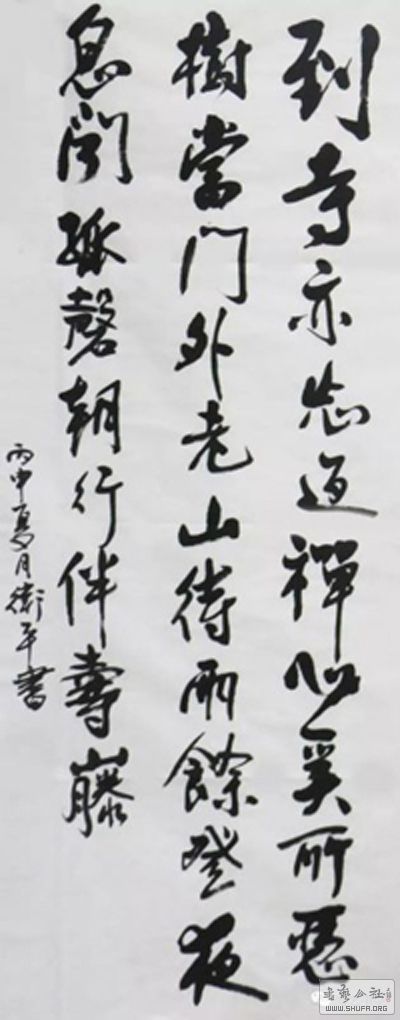 到寺亦忘返禪心奚所憑
樹當門外老山待雨餘登夜
息聞孤磬朝行伴壽藤
丙申夏月衛平書
書藝公社
WWW.SHUFA.ORG